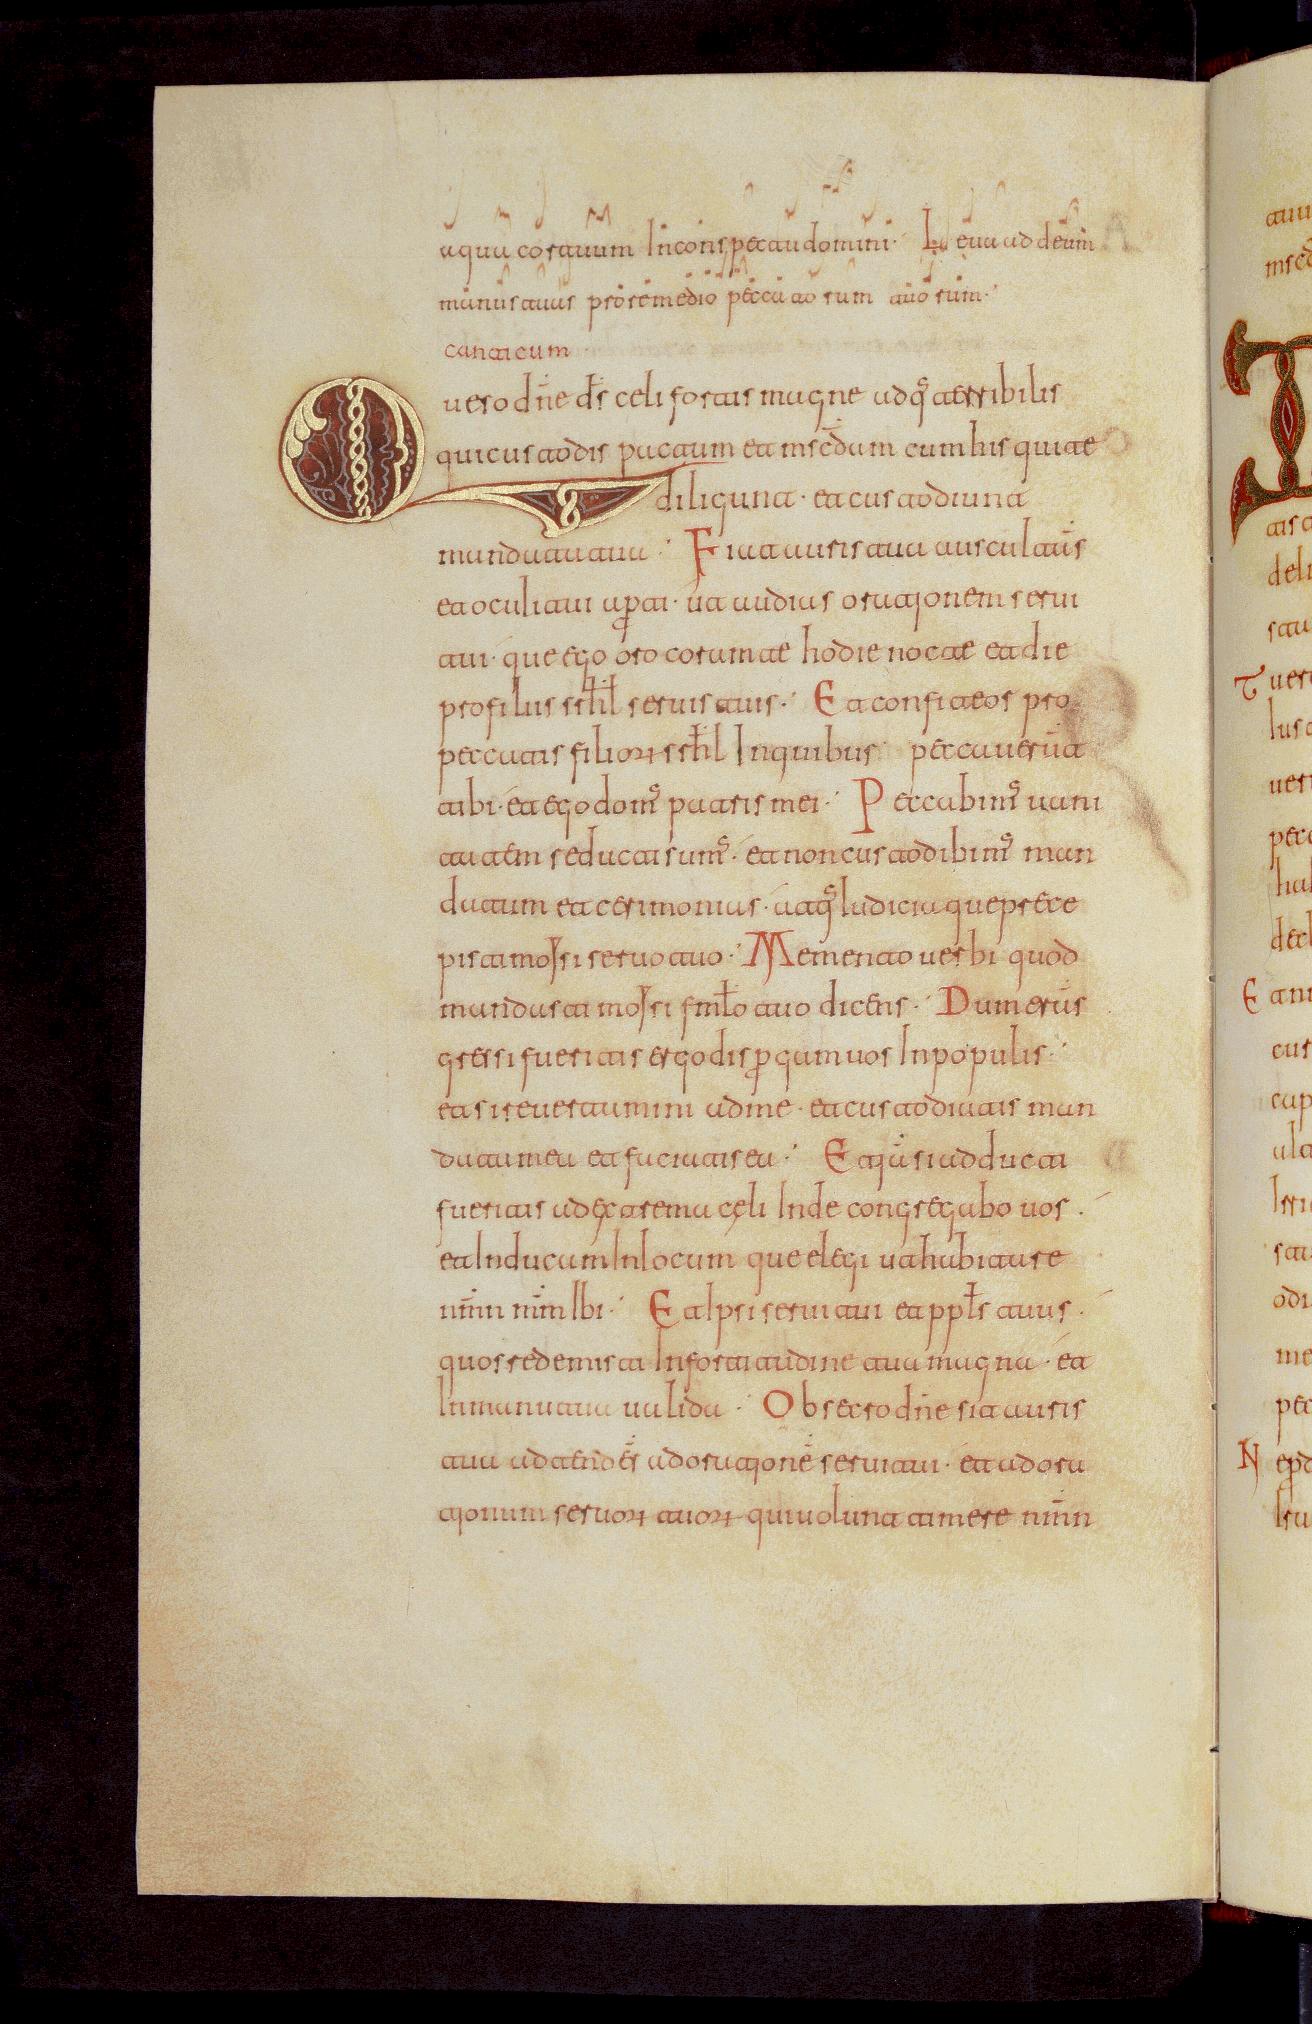 aqua cor tuum In conspectu domini· Leua ad deum
manus tuas pro remedio peccatorum tuorum·
canticum
Quero dn̄e dš celi fortis magne adq̄ terribilis
qui custodis pactum et msc̄dam cum his qui te
diligunt· et custodiunt
mandata tua· Fiat auris tua auscultaňs
et oculi tui aꝑti· ut audias orationem serui
tui· que ego oro coram te hodie nocte et die
pro filiis sr̄hl seruis tuis· Et confiteor pro
peccatis filioꝝ sr̄hl In quibus peccauerūt
tibi· et ego domꝰ patris mei· Peccabimꝰ uani
tatem seducti sumꝰ· et non custodibimꝰ man
datum et cerimonias· atqꝰ Iudicia que prece
pisti moysi seruo tuo· Memento uerbi quod
mandasti moysi fm̄lo tuo dicens· Dum trās
gressi fueritis ergo disꝑgam uos In populis·
et si reuertamini ad me· et custodiatis man
data mea et faciatis ea· Etiā si adducti
fueritis ad extrema cęli Inde congregabo uos·
et Inducam In locum que elegi ut habitare
nm̄n nm̄ Ibi· Et Ipsi serui tui et ppl̄s tuus·
quos redemisti In fortitudine tua magna· et
In manu tua ualida· Obsecro dn̄e sit auris
tua adtendēs ad oratione᷒ serui tui· et ad ora
tionum seruoꝝ tuoꝝ qui uolunt timere nm̄n